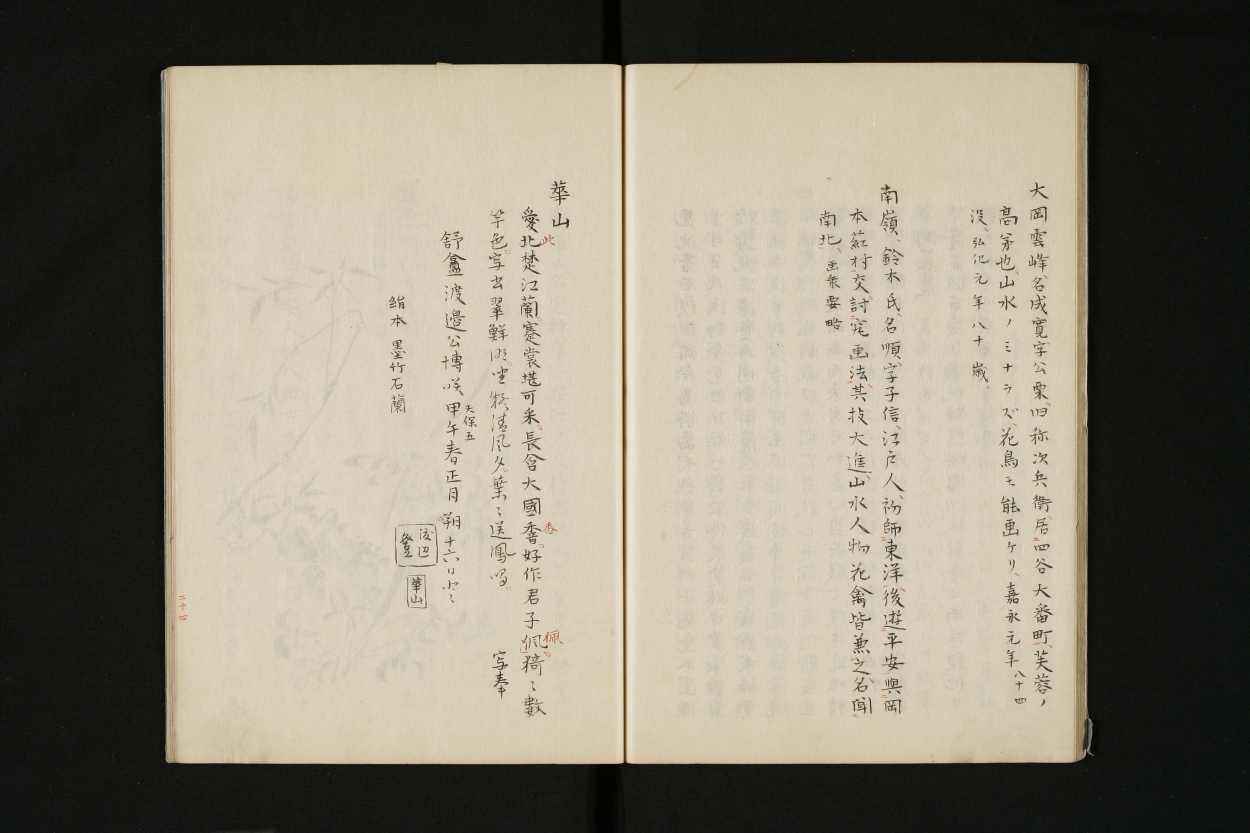 大岡雲峰、名成寛、字公栗、旧称次兵衛、居四谷大番町、芙蓉ノ
高弟也、山水ノミナラズ、花鳥モ能画ケリ、嘉永元年八十四
没、弘化元年八十歳、
南嶺、鈴木氏、名順、字子信、江戸人、初師東洋、後遊平安、與岡
本茲村交、討究画法、其技大進、山水人物花禽皆兼之、名聞
南北、画乗要略
華山
愛北楚江蘭、蹇裳堪可采、長含大國香、好作君子佩、猗〻數
此
香
佩
竿色、写出翠鮮
清風夕、葉〻送鳳鳴。
写奉
舒盦渡邉公博咲 甲午春正月朔十六日
天保五
渡辺
華山
絹本 墨竹石蘭
二十四